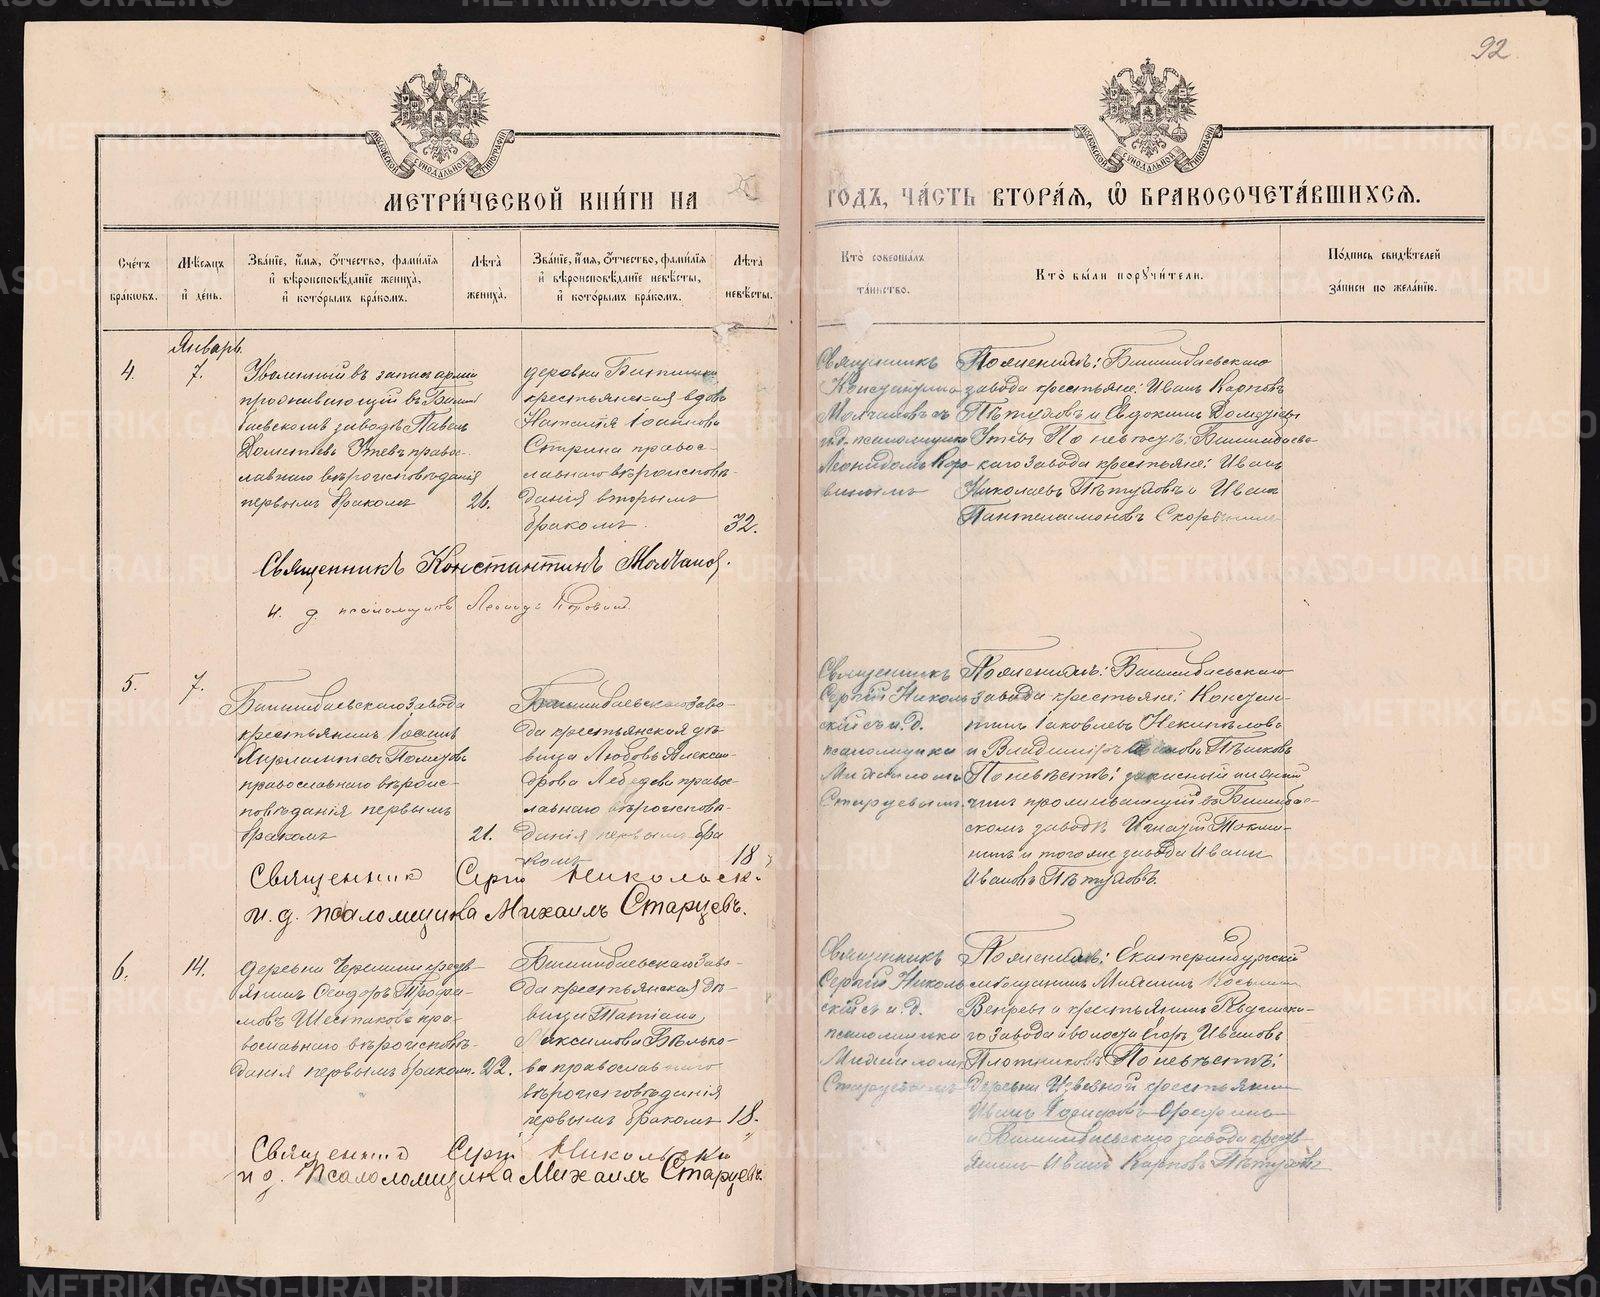 92
МОСКОВСКОЙ СѴНОДАЛЬНОЙ ТИПОГРАФІИ
МОСКОВСКОЙ СѴНОДАЛЬНОЙ ТИПОГРАФІИ
МЕТРИ́ЧЕСКОЙ КНИ́ГИ НА
ГОДЪ, ЧА́СТЬ ВТОРА́Я, Ѽ БРАКОСОЧЕТА́ВШИХСЯ.
Сче́тъ
бра́ковъ.
Мѣ́сяцъ
и҆ де́нь.
Зва́ніе, и҆́мя, ѻ҆́тчество, фами́лія
и҆ вѣроисповѣ́даніе жениха̀,
и҆ кото́рымъ бра́комъ.
Лѣ́та
жениха̀.
Зва́ніе, и҆́мя, ѻ҆́тчество, фами́лія
и҆ вѣроисповѣ́даніе невѣ́сты,
и҆ кото́рымъ бра́комъ.
Лѣ́та
невѣ́сты.
Кто̀ соверша́лъ
та́инство.
Кто̀ бы́ли порꙋчи́тели.
По́дпись свидѣ́телей
за́писи по жела́нію.
Январь
4.
7.
Уволенный въ запасъ арміи
проживающій въ Билим
баевскомъ заводѣ Павелъ
Утевъ право-
славнаго вѣроисповѣданія
первымъ бракомъ
26.
деревни
крестьянская вдова
Наталія Іоаннова
право-
славнаго вѣроисповѣ-
данія вторымъ
бракомъ.
32.
Священникъ
Константинъ
Молчановъ съ
и. д. псаломщика
Леонидомъ Коро-
винымъ
По женихѣ: Билимбаевскаго
завода крестьяне: Иванъ Карповъ
Пѣтуховъ и Евдокимъ
Утевъ По невѣстѣ: Билимбаевс-
каго завода крестьяне: Иванъ
Николаевъ Пѣтуховъ и Иванъ
Пантелеимоновъ
Священникъ Константинъ Молчановъ.
и. д. псаломщика Леонидъ Коровинъ.
5.
7.
Билимбаевскаго завода
крестьянинъ Іоаннъ
Харлампіевъ
православнаго вѣроис-
повѣданія первымъ
бракомъ
21.
Билимбаевскаго заво-
да крестьянская дѣ-
вица Любовь Алексан-
дрова Лебедева право-
славнаго вѣроисповѣ-
данія первымъ бра
комъ
18
Священникъ
Сергій Николь-
скій съ и. д.
псаломщика
Михаиломъ
Старцевымъ.
По женихѣ: Билимбаевскаго
завода крестьяне: Констан-
тинъ Іаковлевъ Некипѣловъ
и Владиміръ Пѣшковъ
По невѣстѣ: запасный
чинъ проживающій въ Билимбаев-
скомъ заводѣ Игнатій Токма-
нинъ и того же завода Иванъ
Ивановъ Пѣтуховъ.
Священникъ Сергій Никольскій
и. д. псаломщика Михаилъ Старцевъ.
6.
14.
деревни Черемши кресть-
янинъ Ѳеодоръ Трофи-
мовъ Шестаковъ пра-
вославнаго вѣроисповѣ-
данія первымъ бракомъ.
22.
Билимбаевскаго заво-
да крестьянская дѣ-
вица Татіана
Максимова Бѣлько-
ва православнаго
вѣроисповѣданія
первымъ бракомъ
18.
Священникъ
Сергій Николь-
скій съ и. д.
псаломщика
Михаиломъ
Старцевымъ
По женихѣ: Екатеринбургскій
мѣщанинъ
и крестьянинъ Ревдинска-
го завода и волости Егоръ Ивановъ
Плотниковъ По невѣстѣ:
деревни Извѣзной крестьянинъ
Иванъ
и Билимбаевскаго завода кресть-
янинъ Иванъ Карповъ Пѣтуховъ
Священникъ Сергій Никольскій
и д. Псаломщика Михаилъ Старцевъ.
METRIKI.GASO-URAL.RU